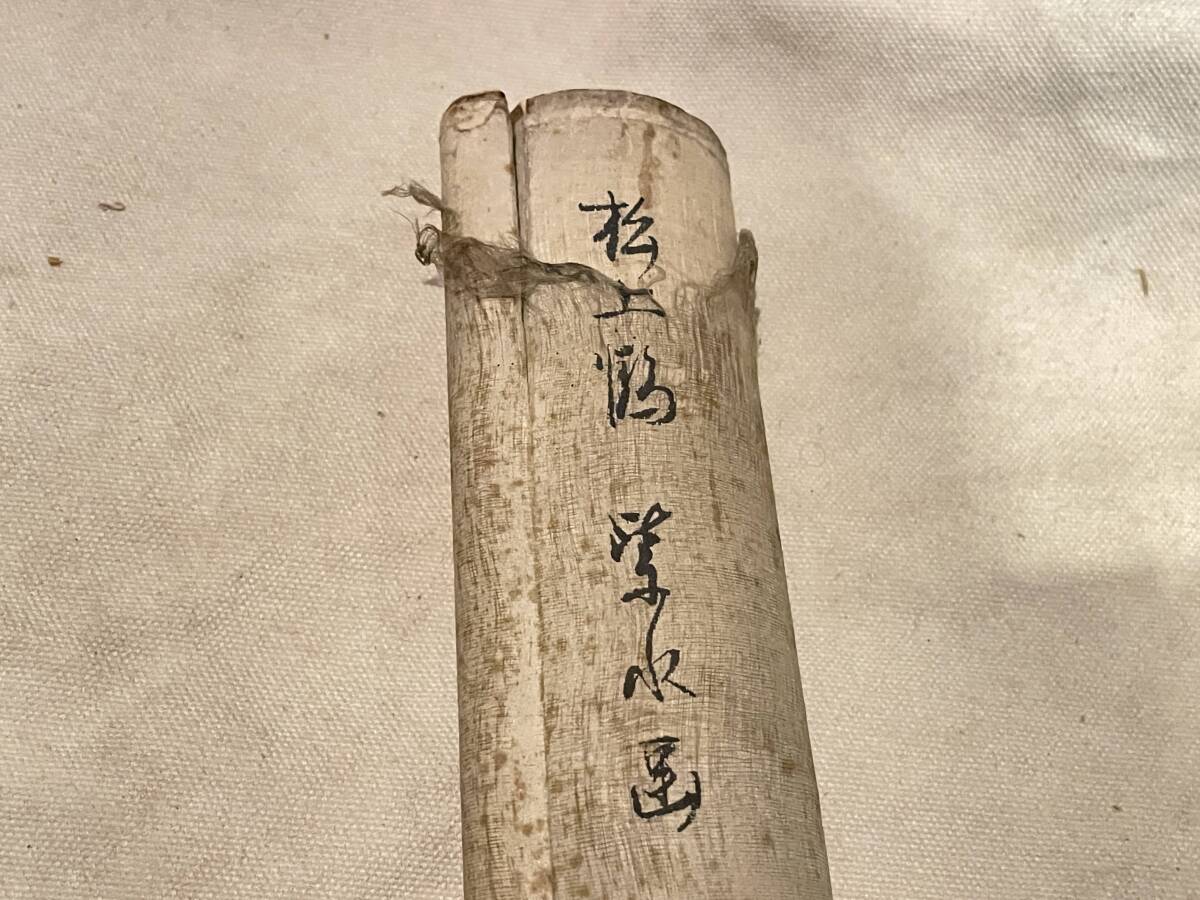 松上鶴 紫水画